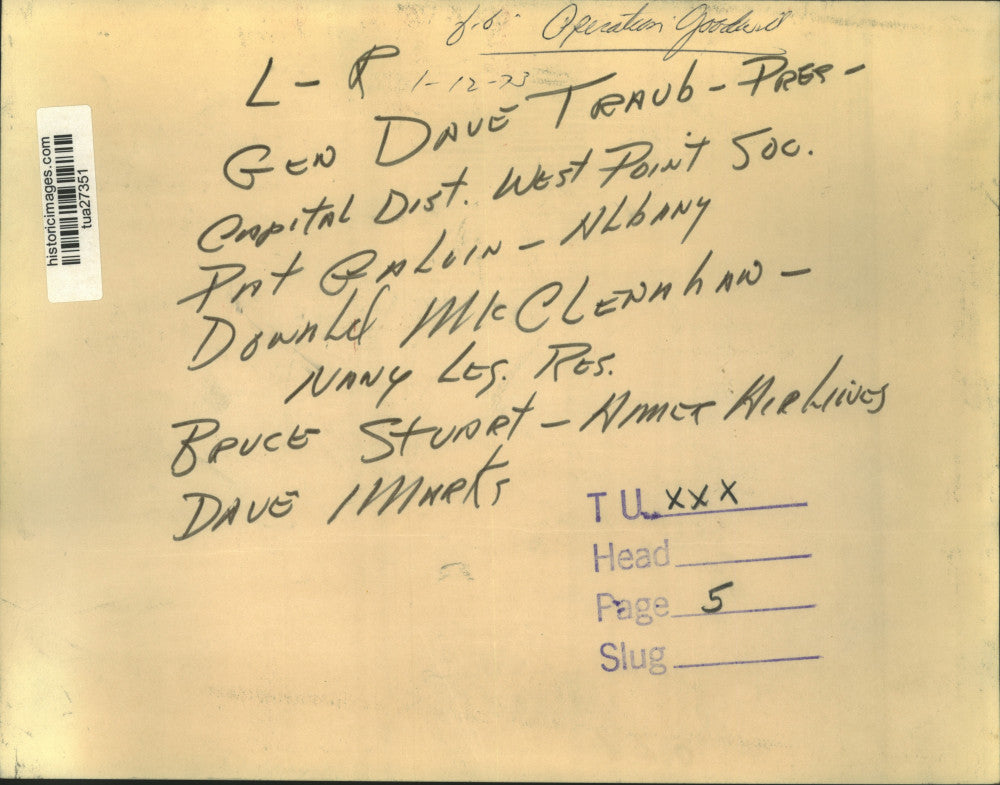 Operation Goodwill
L - R 1-12-73
GEN DAVE TRAUB - PRES -
CAPITAL DIST. WEST POINT SOC.
PAT GALVIN - ALBANY
DONALD McCLENAHAN -
NANY LEG. RES.
BRUCE STUART - AMER AIRLINES
DAVE MARKS
historicimages.com
tua27351
T U XXX
Head
Page 5
Slug